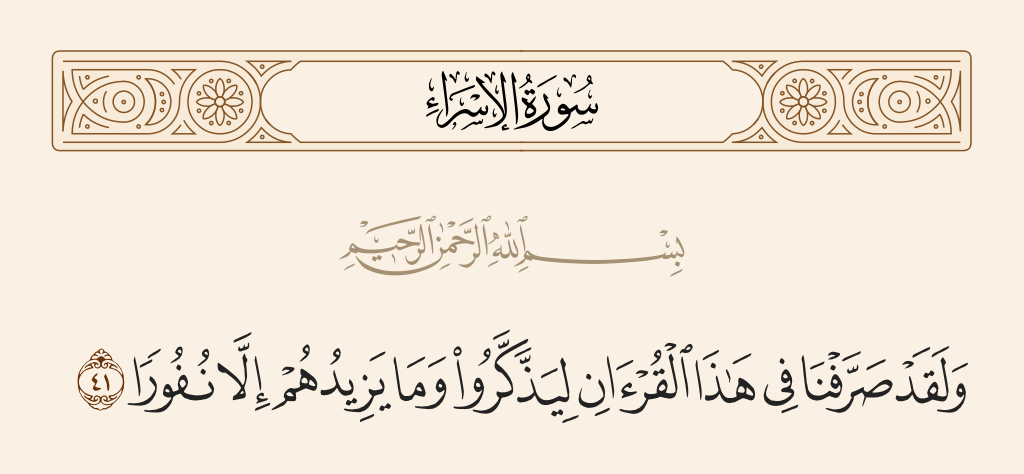 سُورَةُ الإِسْرَاءِ
بِسْمِ ٱللَّهِ ٱلرَّحْمَٰنِ ٱلرَّحِيمِ
وَلَقَدْ صَرَّفْنَا فِى هَـٰذَا ٱلْقُرْءَانِ لِيَذَّكَّرُوا۟ وَمَا يَزِيدُهُمْ إِلَّا نُفُورًا ٤١